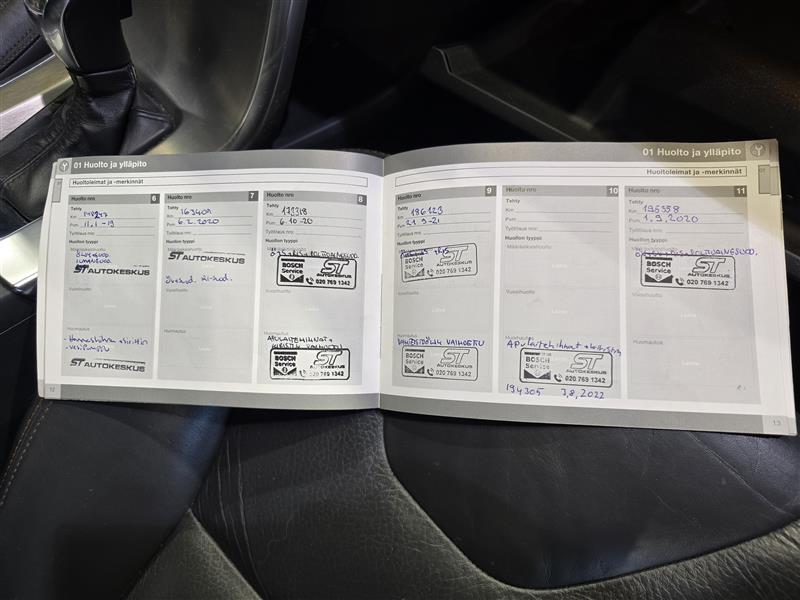 01 Huolto ja ylläpito
Huoltoleimat ja -merkinnät
Huolto nro 6
Tehty
Km
Pvm 11.1-19
Työtilaus nro:
Huollon tyyppi
Määräaikaishuolto
ST AUTOKESKUS
Vuosihuolto
Huomautus
ST AUTOKESKUS
12
Huolto nro 7
Tehty
Km 163409
Pvm 6.2.2020
Työtilaus nro:
Huollon tyyppi
ST AUTOKESKUS
Vuosihuolto
Huomautus
Huolto nro 8
Tehty
Km 172318
Pvm 6-10-20
Työtilaus nro:
Huollon tyyppi
BOSCH Service ST AUTOKESKUS
020 769 1342
Vuosihuolto
Huomautus
APULAITEHIHNAT+
KIRISTIN VAIHDETTU
BOSCH Service ST AUTOKESKUS
020 769 1342
01 Huolto ja ylläpito
Huoltoleimat ja -merkinnät
Huolto nro 9
Tehty
Km 186123
Pvm 21.9-21
Työtilaus nro:
Huollon tyyppi
BOSCH Service ST AUTOKESKUS
020 769 1342
Vuosihuolto
Huomautus
VAIHDEÖLJY VAIHDETTU
BOSCH Service ST AUTOKESKUS
020 769 1342
Huolto nro 10
Tehty
Km
Pvm
Työtilaus nro:
Huollon tyyppi
Määräaikaishuolto
Vuosihuolto
Huomautus
Apulaitehihnat + kiristin
BOSCH Service ST AUTOKESKUS
020 769 1342
194305 3,8,2022
Huolto nro 11
Tehty
Km 195358
Pvm 1.9.2020
Työtilaus nro:
Huollon tyyppi
BOSCH Service ST AUTOKESKUS
020 769 1342
Vuosihuolto
Huomautus
13